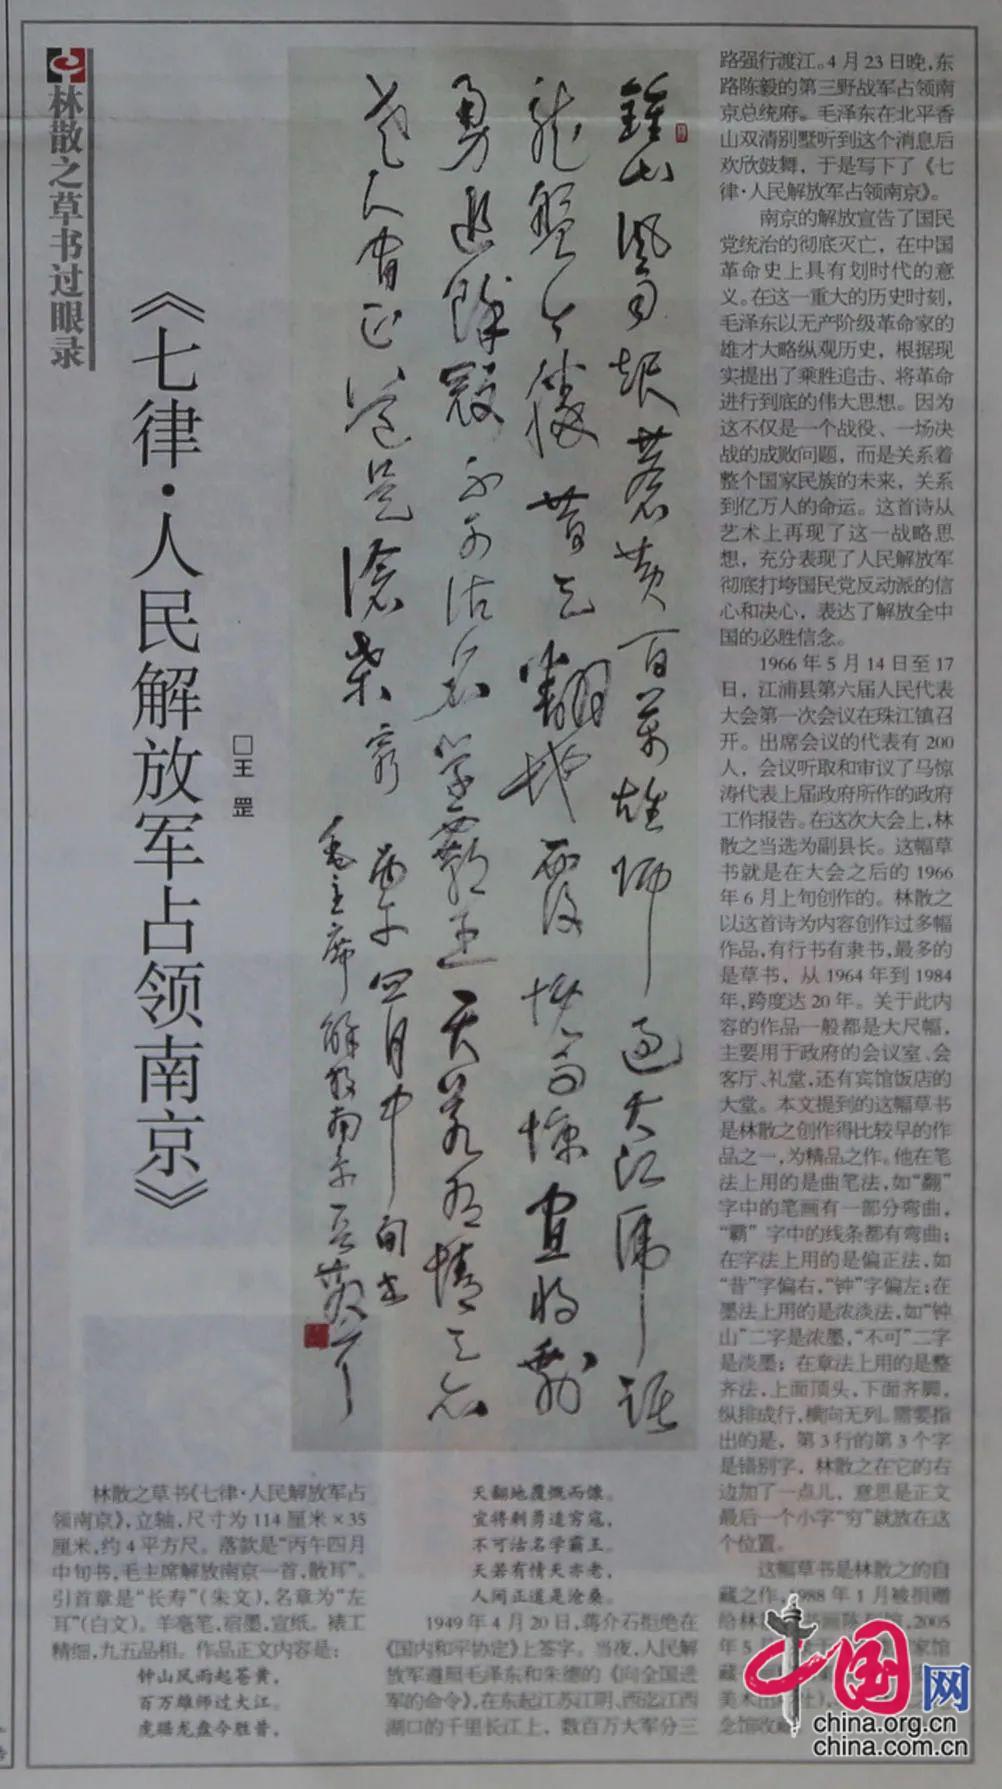 林散之草书过眼录
《七律·人民解放军占领南京》
□王 罡
钟山风雨起苍黄百万雄师过大江虎踞
龙盘今胜昔天翻地覆慨而慷宜将剩
勇追馀寇不可沽名学霸王天若有情天亦
老人间正道是沧桑 穷 丙午四月中旬书
毛主席解放南京一首 散耳
林散之草书《七律·人民解放军占
领南京》,立轴,尺寸为114厘米×35
厘米,约4平方尺。落款是“丙午四月
中旬书,毛主席解放南京一首,散耳”。
引首章是“长寿”(朱文),名章为“左
耳”(白文)。羊毫笔,宿墨,宣纸。裱工
精细,九五品相。作品正文内容是:
钟山风雨起苍黄,
百万雄师过大江。
虎踞龙盘今胜昔,
天翻地覆慨而慷。
宜将剩勇追穷寇,
不可沽名学霸王。
天若有情天亦老,
人间正道是沧桑。
1949年4月20日,蒋介石拒绝在
《国内和平协定》上签字。当夜,人民解
放军遵照毛泽东和朱德的《向全国进
军的命令》,在东起江苏江阴、西迄江西
湖口的千里长江上,数百万大军分三
路强行渡江。4月23日晚,东
路陈毅的第三野战军占领南
京总统府。毛泽东在北平香
山双清别墅听到这个消息后
欢欣鼓舞,于是写下了《七
律·人民解放军占领南京》。
南京的解放宣告了国民
党统治的彻底灭亡,在中国
革命史上具有划时代的意
义。在这一重大的历史时刻,
毛泽东以无产阶级革命家的
雄才大略纵观历史,根据现
实提出了乘胜追击、将革命
进行到底的伟大思想。因为
这不仅是一个战役、一场决
战的成败问题,而是关系着
整个国家民族的未来,关系
到亿万人的命运。这首诗从
艺术上再现了这一战略思
想,充分表现了人民解放军
彻底打垮国民党反动派的信
心和决心,表达了解放全中
国的必胜信念。
1966年5月14日至17
日,江浦县第六届人民代表
大会第一次会议在珠江镇召
开。出席会议的代表有200
人,会议听取和审议了马惊
涛代表上届政府所作的政府
工作报告。在这次大会上,林
散之当选为副县长。这幅草
书就是在大会之后的1966
年6月上旬创作的。林散之
以这首诗为内容创作过多幅
作品,有行书有隶书,最多的
是草书,从1964年到1984
年,跨度达20年。关于此内
容的作品一般都是大尺幅,
主要用于政府的会议室、会
客厅、礼堂,还有宾馆饭店的
大堂。本文提到的这幅草书
是林散之创作得比较早的作
品之一,为精品之作。他在笔
法上用的是曲笔法,如“翻”
字中的笔画有一部分弯曲,
“霸”字中的线条都有弯曲;
在字法上用的是偏正法,如
“昔”字偏右,“钟”字偏左;在
墨法上用的是浓淡法,如“钟
山”二字是浓墨,“不可”二字
是淡墨;在章法上用的是整
齐法,上面顶头,下面齐脚,
纵排成行,横向无列。需要指
出的是,第3行的第3个字
是错别字,林散之在它的右
边加了一点儿,意思是正文
最后一个小字“穷”就放在这
个位置。
这幅草书是林散之的自
藏之作,1988年1月被捐赠
给林 2005
年5 家馆
藏
美术出 社),
念馆收藏
中国网
china.org.cn
china.com.cn